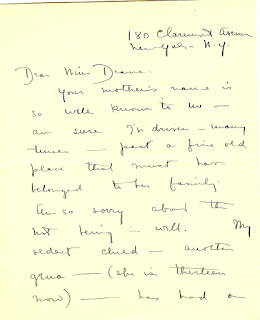 180 Claremont Avenue
New York - N.Y.
Dear Miss Deane -
Your mother's name is
so well known to me -
am sure I've driven - many
times - past a fine old
place that must have
belonged to her family.
Am so sorry about the
not being - well. My
eldest child - another
- (she is thirteen
now) - has had a